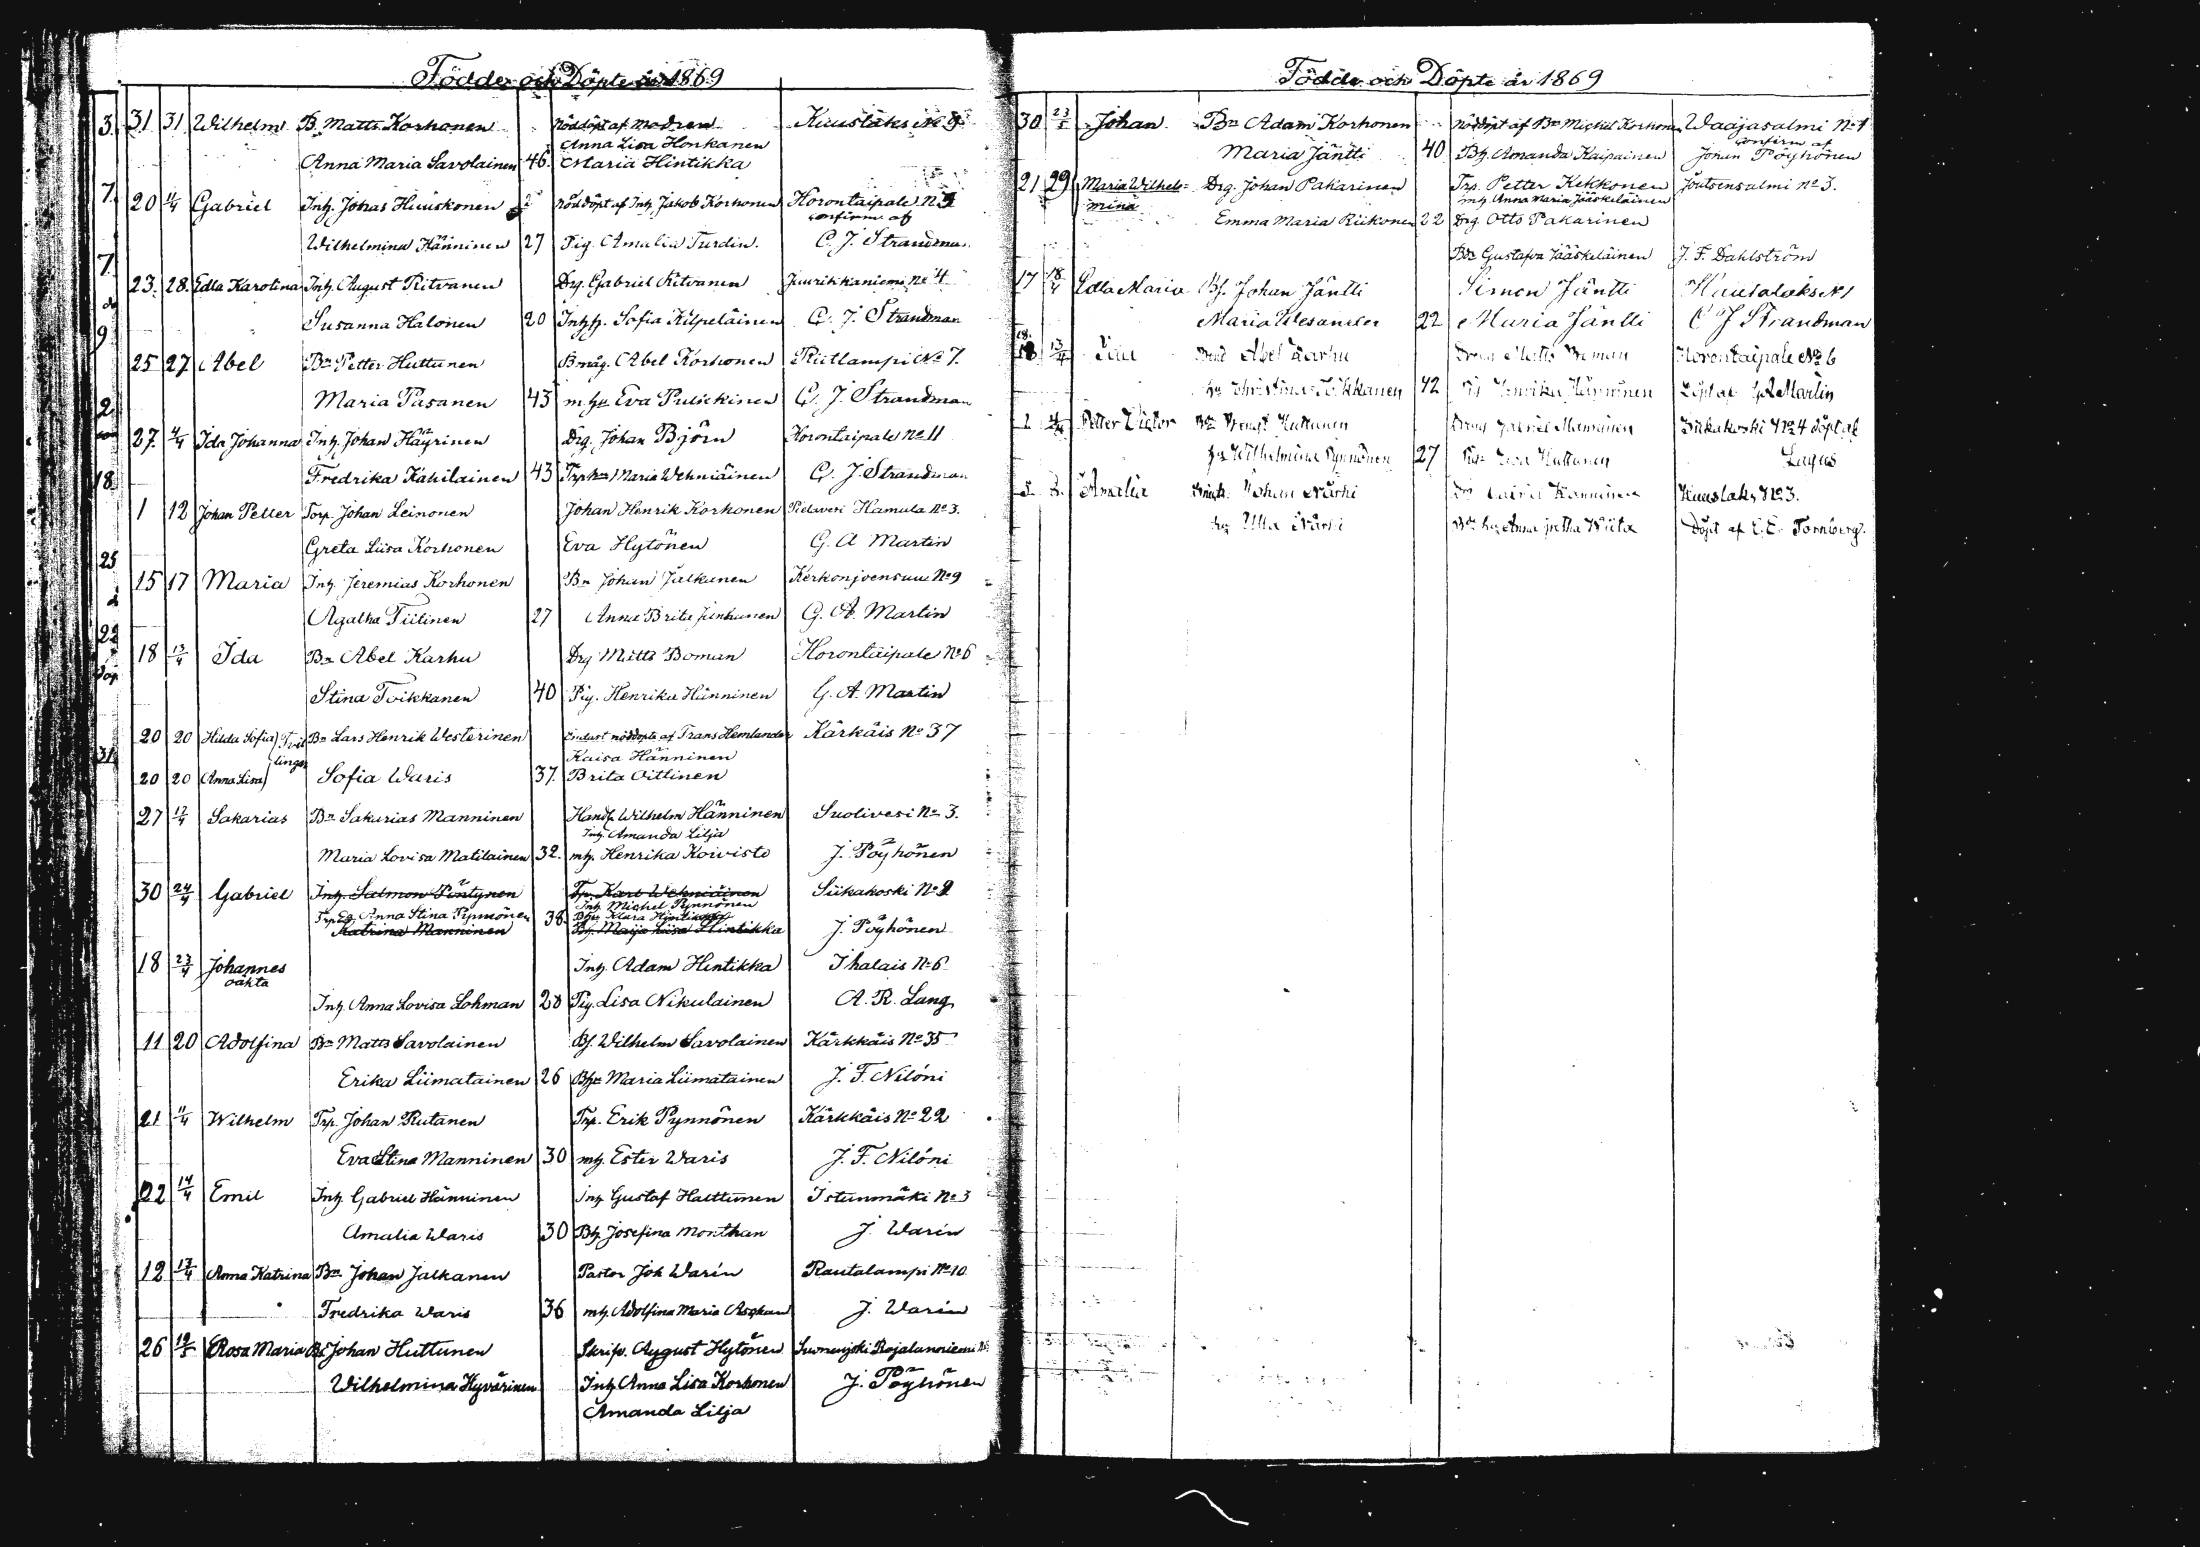 Födde och Döpte år 1869
31 31 Wilhelm B. Matts Korhonen nöddöpt af modren Kuuslaks No 9
Anna Lisa Honkanen
Anna Maria Savolainen 46. Maria Hintikka
20 4/4 Gabriel Inh. Johas Huuskonen nöddöpt af Inh. Jakob Korhonen Horontaipale No
confirm af
Wilhelmina Hänninen 27 Pig. Amalia Turdin. C. J. Strandman
23. 28. Edla Karolina Inh. August Ritvanen Drg. Gabriel Ritvanen Juurikkaniemi No 4
Susanna Halonen 20 Sofia Kilpeläinen C. J. Strandman
25 27 Abel Bn Petter Huttunen Bmåg. Abel Korhonen Riitlampi No 7.
Maria Pasanen 43 Eva Pulickinen C. J. Strandman
27. 4/4 Ida Johanna Inh. Johan Häyrinen Drg. Johan Björn Horontaipale No 11
Fredrika Kahilainen 43 Maria Wehniäinen C. J. Strandman
1 12 Johan Petter Torp. Johan Leinonen Johan Henrik Korhonen Pielaveri Hamula No 3.
Greta Liisa Korhonen Eva Hytönen G. A Martin
15 17 Maria Inh. Jeremias Korhonen Bn Johan Jalkanen Kerkonjoensuu No 9
Agatha Tiitinen 27 Anna Brita Junhunen G. A. Martin
18 13/4 Ida Bn Abel Karhu Drg Matts Boman Horontaipale No 6
Stina Toikkanen 40 Pig. Henrika Hänninen G. A. Martin
20 20 Hilda Sofia Tvil Bn Lars Henrik Westerinen nöddöpte af Frans Hemlander Kärkäis No 37
lingar Kaisa Hänninen
20 20 Anna Lisa Sofia Waris 37. Brita Oittinen
27 12/4 Sakarias Bn Sakarias Manninen Wilhelm Hänninen Suolivesi No 3.
Inh. Amanda Lilja
Maria Lovisa Matilainen 32. mh. Henrika Koivisto J. Pöyhönen
30 24/4 Gabriel Inh. Salmon Pöntynen Trp. Karl Wehniäinen Siikakoski No 2
Inh Michel Pynnönen
Anna Stina Pynnönen 38. Klara Hintikka
Katrina Manninen Maija Liisa Hintikka J. Pöyhönen
18 23/4 Johannes Inh. Adam Hintikka Ihalais No 6
oäkta
Inh. Anna Lovisa Lohman 28 Pig. Lisa Nikulainen A. R. Lang
11 20 Adolfina Bn Matts Savolainen Bf. Wilhelm Savolainen Kärkkäis No 35
Erika Liimatainen 26 Maria Liimatainen J. F. Nilóni
21 11/4 Wilhelm Trp. Johan Rutanen Trp. Erik Pynnönen Kärkkäis No 22
Eva Stina Manninen 30 mh. Ester Waris J. F. Nilóni
22 14/4 Emil Inh. Gabriel Hänninen Inh Gustaf Halttunen Istunmäki No 3
Amalia Waris 30 Bh. Josefina Monthan J. Warén
12 17/4 Anna Katrina Bn. Johan Jalkanen Pastor Joh Warén Rautalampi No 10
Fredrika Waris 36 mh. Adolfina Maria J. Warén
26 12/5 Rosa Maria Johan Huttunen Skrifv. August Hytönen
Wilhelmina Hyvärinen Inh Anna Lisa Korhonen J. Pöyhönen
Amanda Lilja
Födde och Döpte år 1869
30 23/5 Johan Bn Adam Korhonen nöddöpt af Bn Michel Korhonen Waajasalmi No 1
confirm af
Maria Jäntti 40 Bh. Amanda Kaipainen Johan Pöyhönen
21 29 Maria Wilhel= Drg. Johan Pakarinen Trp. Petter Kekkonen Joutsensalmi No 3.
mina mh Anna Maria Jääskeläinen
Emma Maria Riikonen 22 Drg. Otto Pakarinen
Gustafva Jääskeläinen J. F. Dahlström
17 18/4 Edla Maria Bf. Johan Jäntti Simon Jäntti Hautalaks No 1
Maria Alexander 22 Maria Jäntti C J Strandman
18 13/4 Abel Karhu Matts Boman Horontaipale No 6
Christina Toikkanen 42 Henrika Hänninen Döpt af G. A Martin
Petter Victor Huttunen Gabriel Manninen Siikakoski No 4 döpt af
Wilhelmina Pynnönen 27 Huttunen Lagus
Amalia Johan Närhi Kuuslaks No 3.
Ulla Närhi Anna Döpt af C. E. Tornberg.